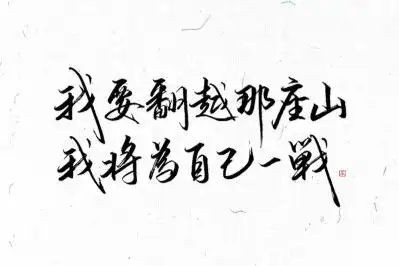 我要翻越那座山
我将為自己一戰